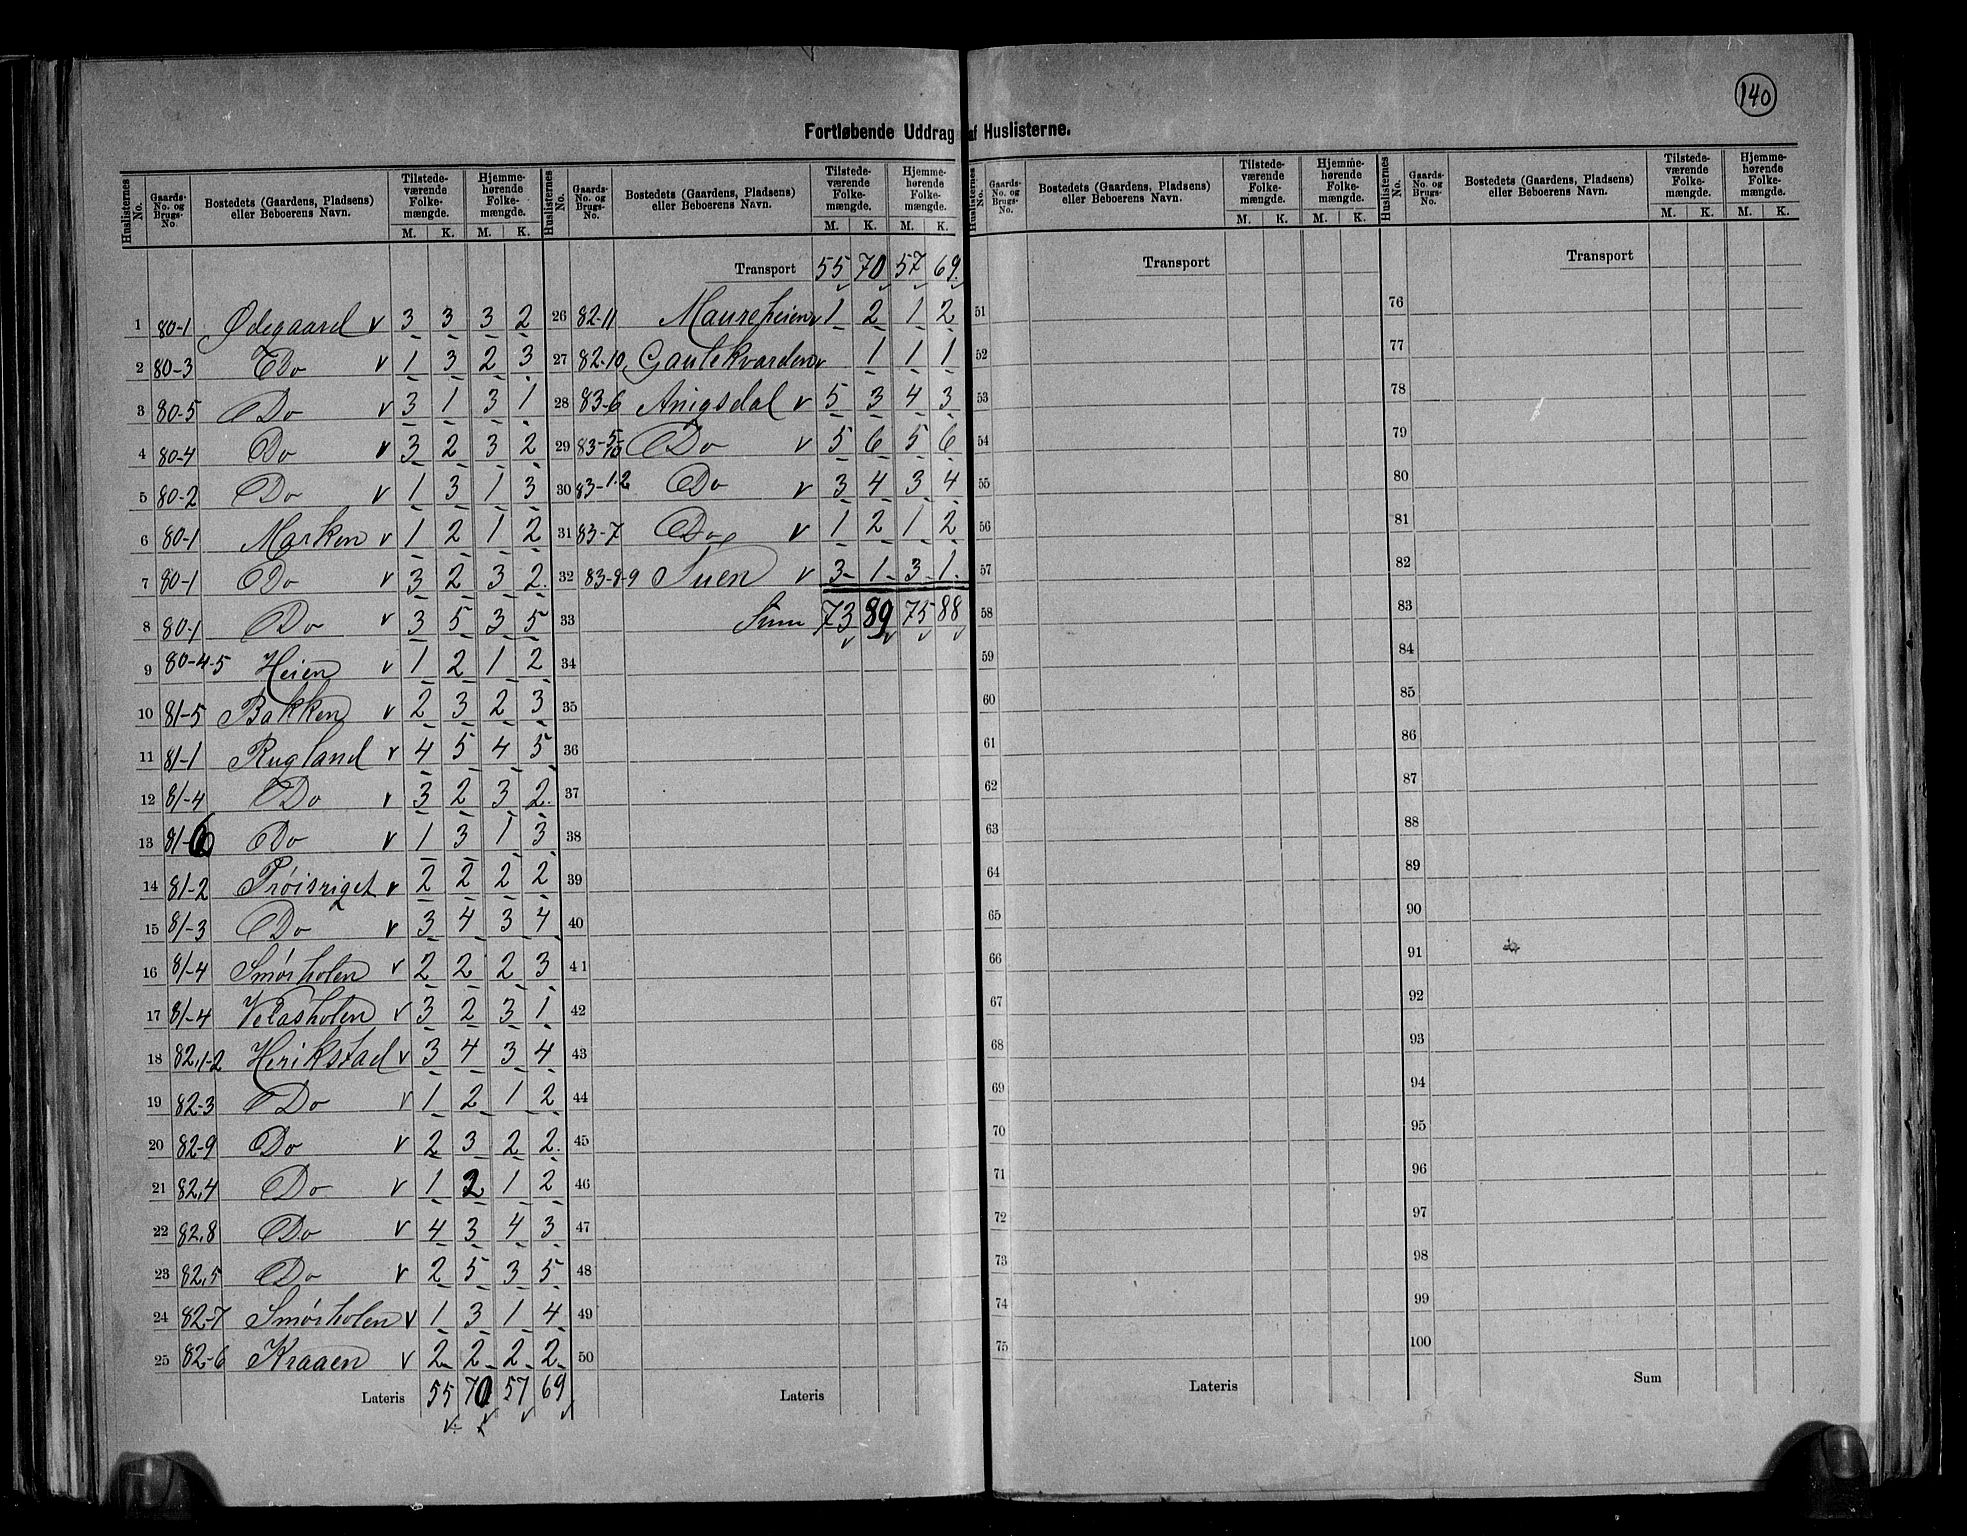 140
Fortløbende Uddrag af Huslisterne.
Huslisternes No. Gaards-No. og Brugs-No. Bostedets (Gaardens, Pladsens) eller Beboerens Navn. Tilstede-værende Folke-mængde. M. K. Hjemme-hørende Folke-mængde. M. K.
1 80-1 Ødegaard v 3 3 3 2
2 80-3 Do v 1 3 2 3
3 80-5 Do v 3 1 3 1
4 80-4 Do v 3 2 3 2
5 80-2 Do v 1 3 1 3
6 80-1 Marken v 1 2 1 2
7 80-1 Do v 3 2 3 2
8 80-1 Do v 3 5 3 5
9 80-4-5 Heien v 1 2 1 2
10 81-5 Bakken v 2 3 2 3
11 81-1 Rugland v 4 5 4 5
12 81-4 Do v 3 2 3 2
13 81-6 Do v 1 3 1 3
14 81-2 Prøisriget v 2 2 2 2
15 81-3 Do v 3 4 3 4
16 81-4 Smørholen v 2 2 2 3
17 81-4 v 3 2 3 1
18 82,1-2 Herikstad v 3 4 3 4
19 82-3 Do v 1 2 1 2
20 82-9 Do v 2 3 2 2
21 82,4 Do v 1 2 1 2
22 82,8 Do v 4 3 4 3
23 82,5 Do v 2 5 3 5
24 82-7 Smørholen v 1 3 1 4
25 82-6 Kraaen v 2 2 2 2
Lateris 55 70 57 69
Huslisternes No. Gaards-No. og Brugs-No. Bostedets (Gaardens, Pladsens) eller Beboerens Navn. Tilstede-værende Folke-mængde. M. K. Hjemme-hørende Folke-mængde. M. K.
Transport 55 70 57 69
26 82-11 Maureheien v 1 2 1 2
27 82-10 Gaulekvarden v 1 1 1
28 83-6 Anigsdal v 5 3 4 3
29 83-5-10 Do v 5 6 5 6
30 83-1.2 Do v 3 4 3 4
31 83-7 Do v 1 2 1 2
32 83-8-9 v 3 1 3 1
33 Sum 73 89 75 88
34
35
36
37
38
39
40
41
42
43
44
45
46
47
48
49
50
Lateris
Huslisternes No. Gaards-No. og Brugs-No. Bostedets (Gaardens, Pladsens) eller Beboerens Navn. Tilstede-værende Folke-mængde. M. K. Hjemme-hørende Folke-mængde. M. K.
Transport
51
52
53
54
55
56
57
58
59
60
61
62
63
64
65
66
67
68
69
70
71
72
73
74
75
Lateris
Huslisternes No. Gaards-No. og Brugs-No. Bostedets (Gaardens, Pladsens) eller Beboerens Navn. Tilstede-værende Folke-mængde. M. K. Hjemme-hørende Folke-mængde. M. K.
Transport
76
77
78
79
80
81
82
83
84
85
86
87
88
89
90
91
92
93
94
95
96
97
98
99
100
Sum